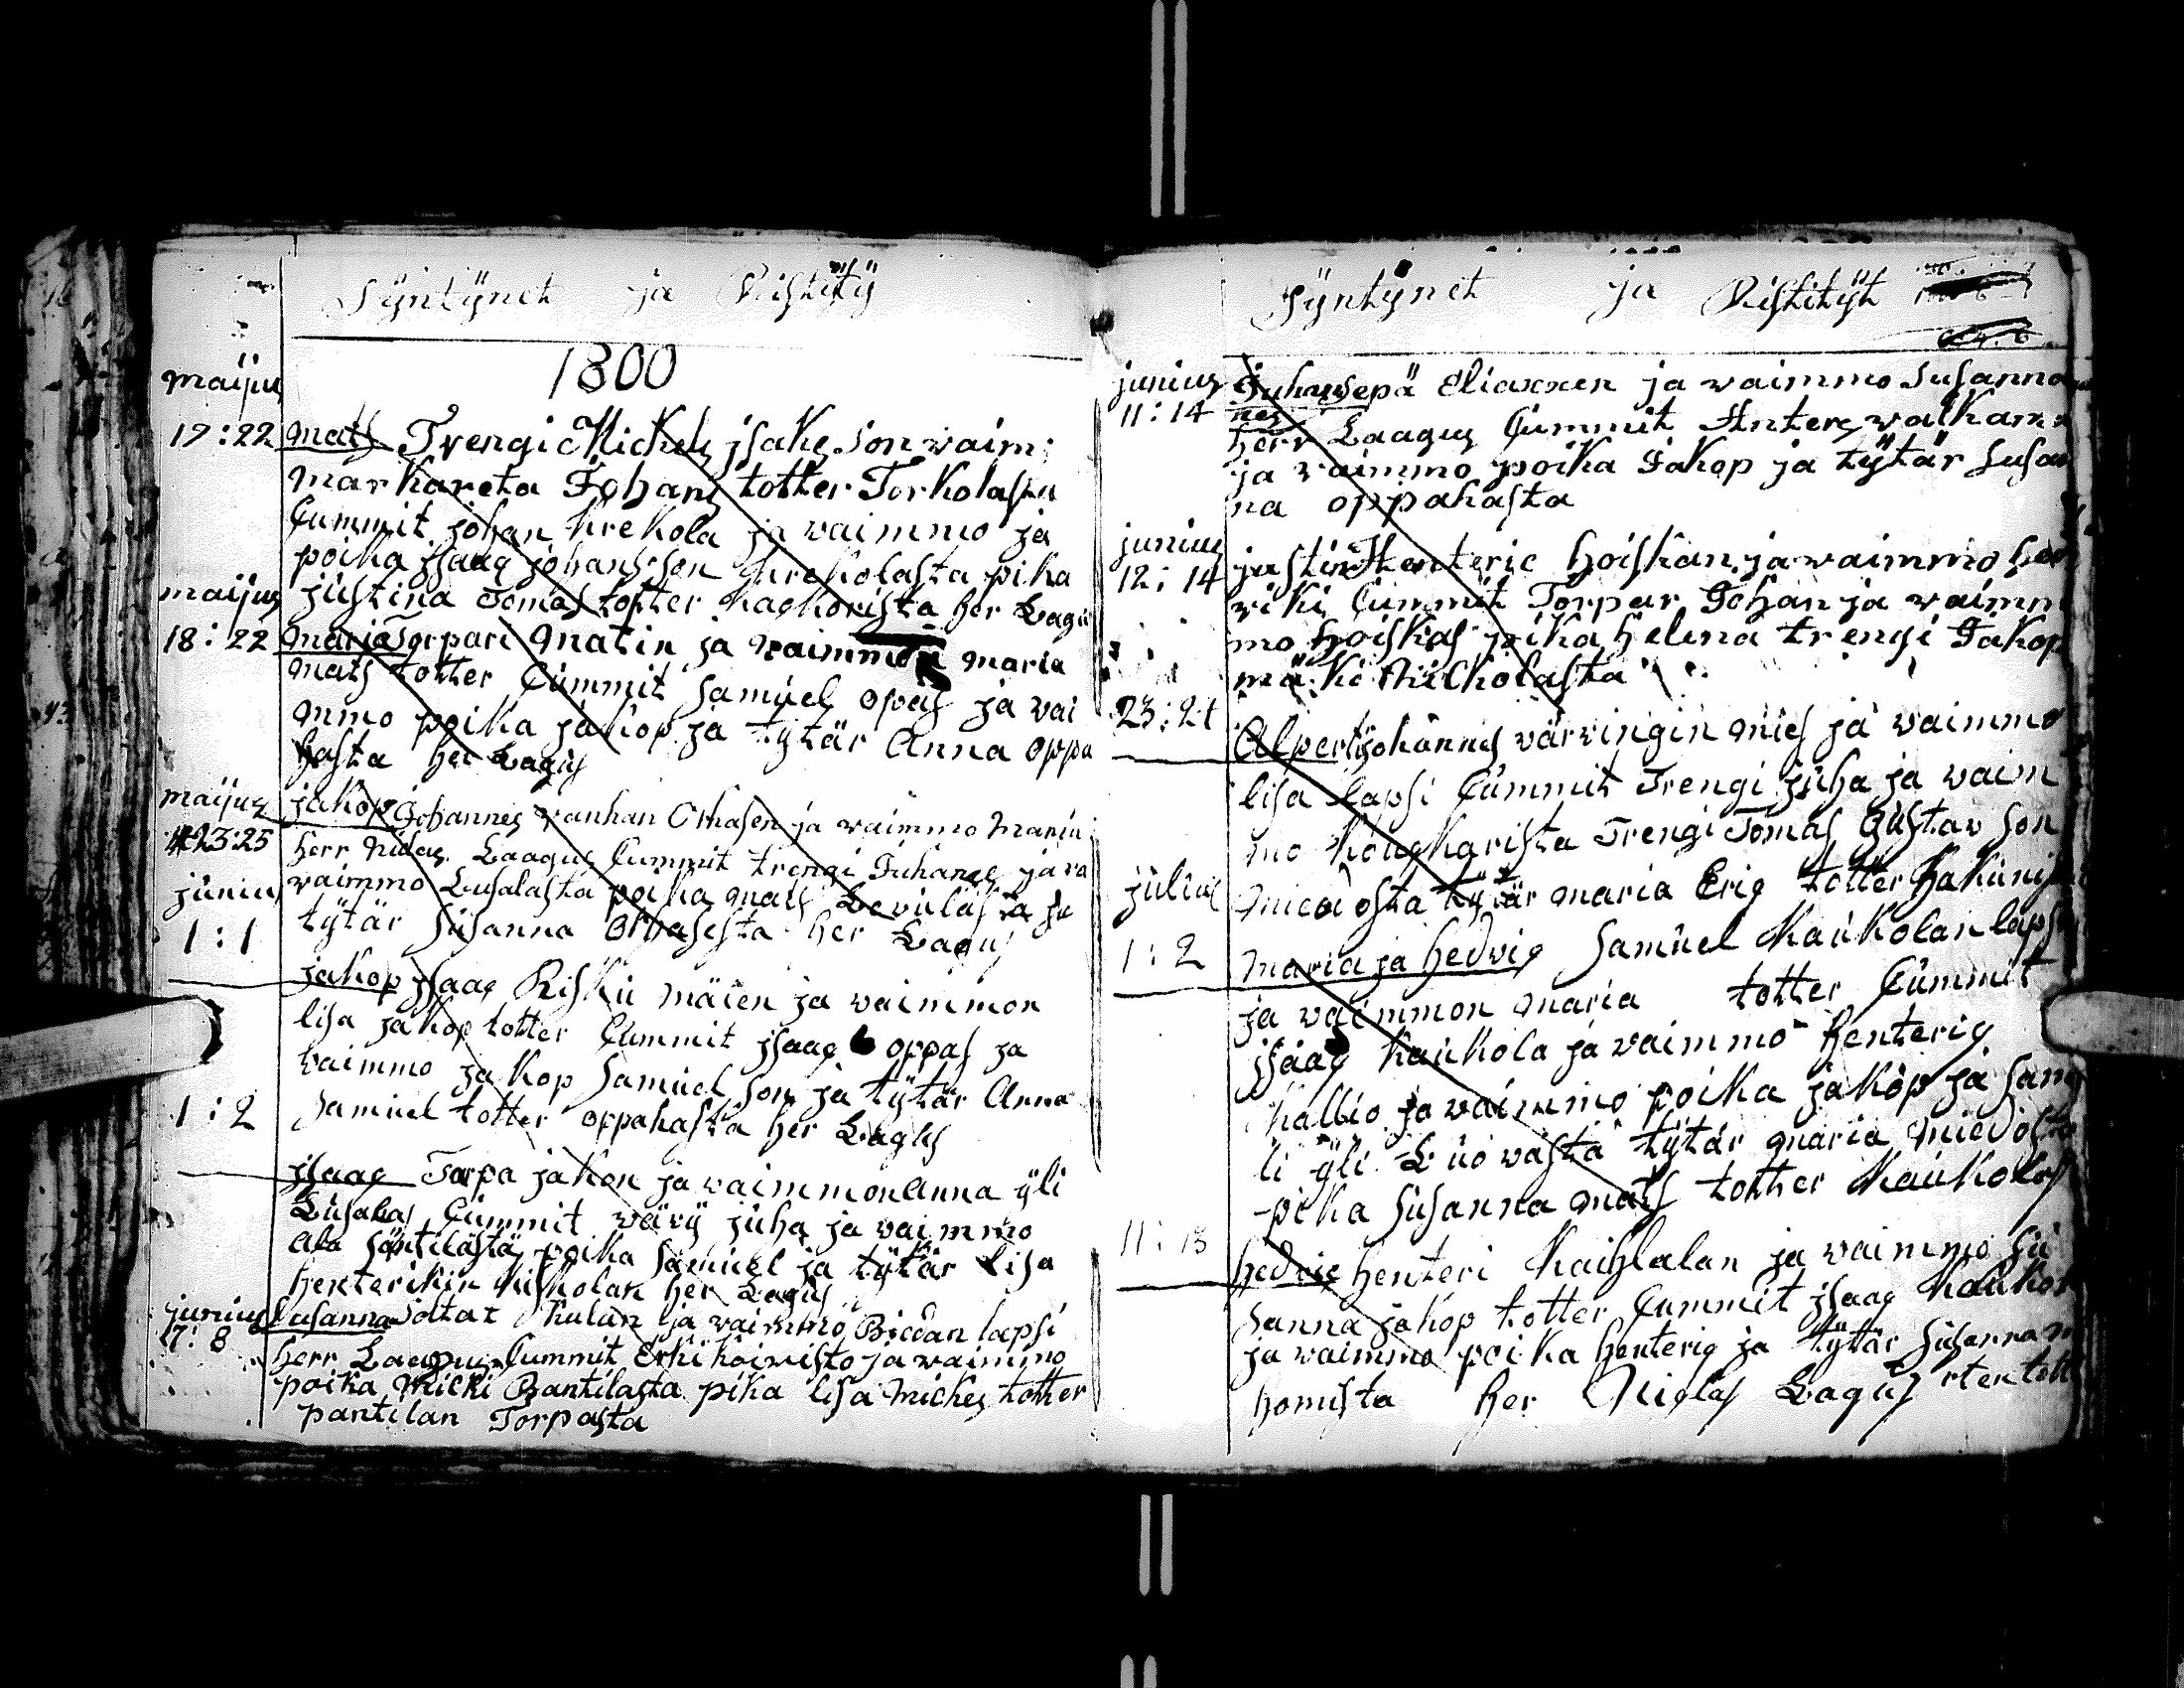 Syntynet ja Ristityt
1800
maijus
17:22 mats Trengi Mickels jsaks son vaim:
markareta Johans totter Torkolasta
Cummit johan krekola ja vaimmo ja
poika jsaag johans son krekolasta pika
justina Tomas totter her Lagus
maijus
18:22 maria Torpari matin ja vaimmon maria
mats totter Cummit samuel opas ja vai
mmo poika jakop ja tytär Anna oppa
hasta her Lagus
maijus jakop Johannes vanhan Orhasen ja vaimmo maria
23:25 herr Laagus Cummit trengi Juhanes ja va
junius vaimmo Lusalasta poika mats ja
1:1 tytär susanna her Lagus
jakop jsaag Risku mäien ja vaimmon
lisa jakop totter Cummit jsaag oppas ja
vaimmo jakop samuel son ja tytär Anna
1:2 samuel totter oppahasta her Lagus
jsaag Torpa jakon ja vaimmon Anna yli
Lusalas Cummit väry juha ja vaimmo
ala säntilästä poika samuel ja tytär lisa
henterikin her Lagus
junius susanna soltat kulan ja vaimmo lapsi
17:8 herr Laagus Cummit Erki koivisto ja vaimmo
poika micki Bantilasta pika lisa mickes totter
pantilan Torpasta
Syntynet ja Ristityt
junius Juhansepä Eliaxxen ja vaimmo susanna
11:14 herr Laagus Cummit Anters
ja vaimmo poika Jakop ja tytär susan
na oppahasta
junius
12:14 justina Henteric hoiskan ja vaimmo hed
viki Cummit Torpar Johan ja vaimm
mo hoiskas pika helena trengi Jakop
mäki
23:24 Alpertt johannes värvingin mies ja vaimmo
lisa lapsi Cummit Trengi juha ja vaim
mo Trengi Tomas Gustav son
julius miedosta tytär maria Erig totter
1:2 maria ja hedvig samuel kaukolan laps
ja vaimmon maria totter Cummit
jsaag kaukola ja vaimmo henterig
kallio ja vaimmo poika jakop ja
li yli Luovasta tytär maria miedosta
pika susanna mats totter kaukolas
11:13 hedvig henteri kaihlalan ja vaimmo su
sanna jakop totter Cummit jsaag
ja vaimmo poika henterig ja tytär susanna
homista her Niglas Lagus